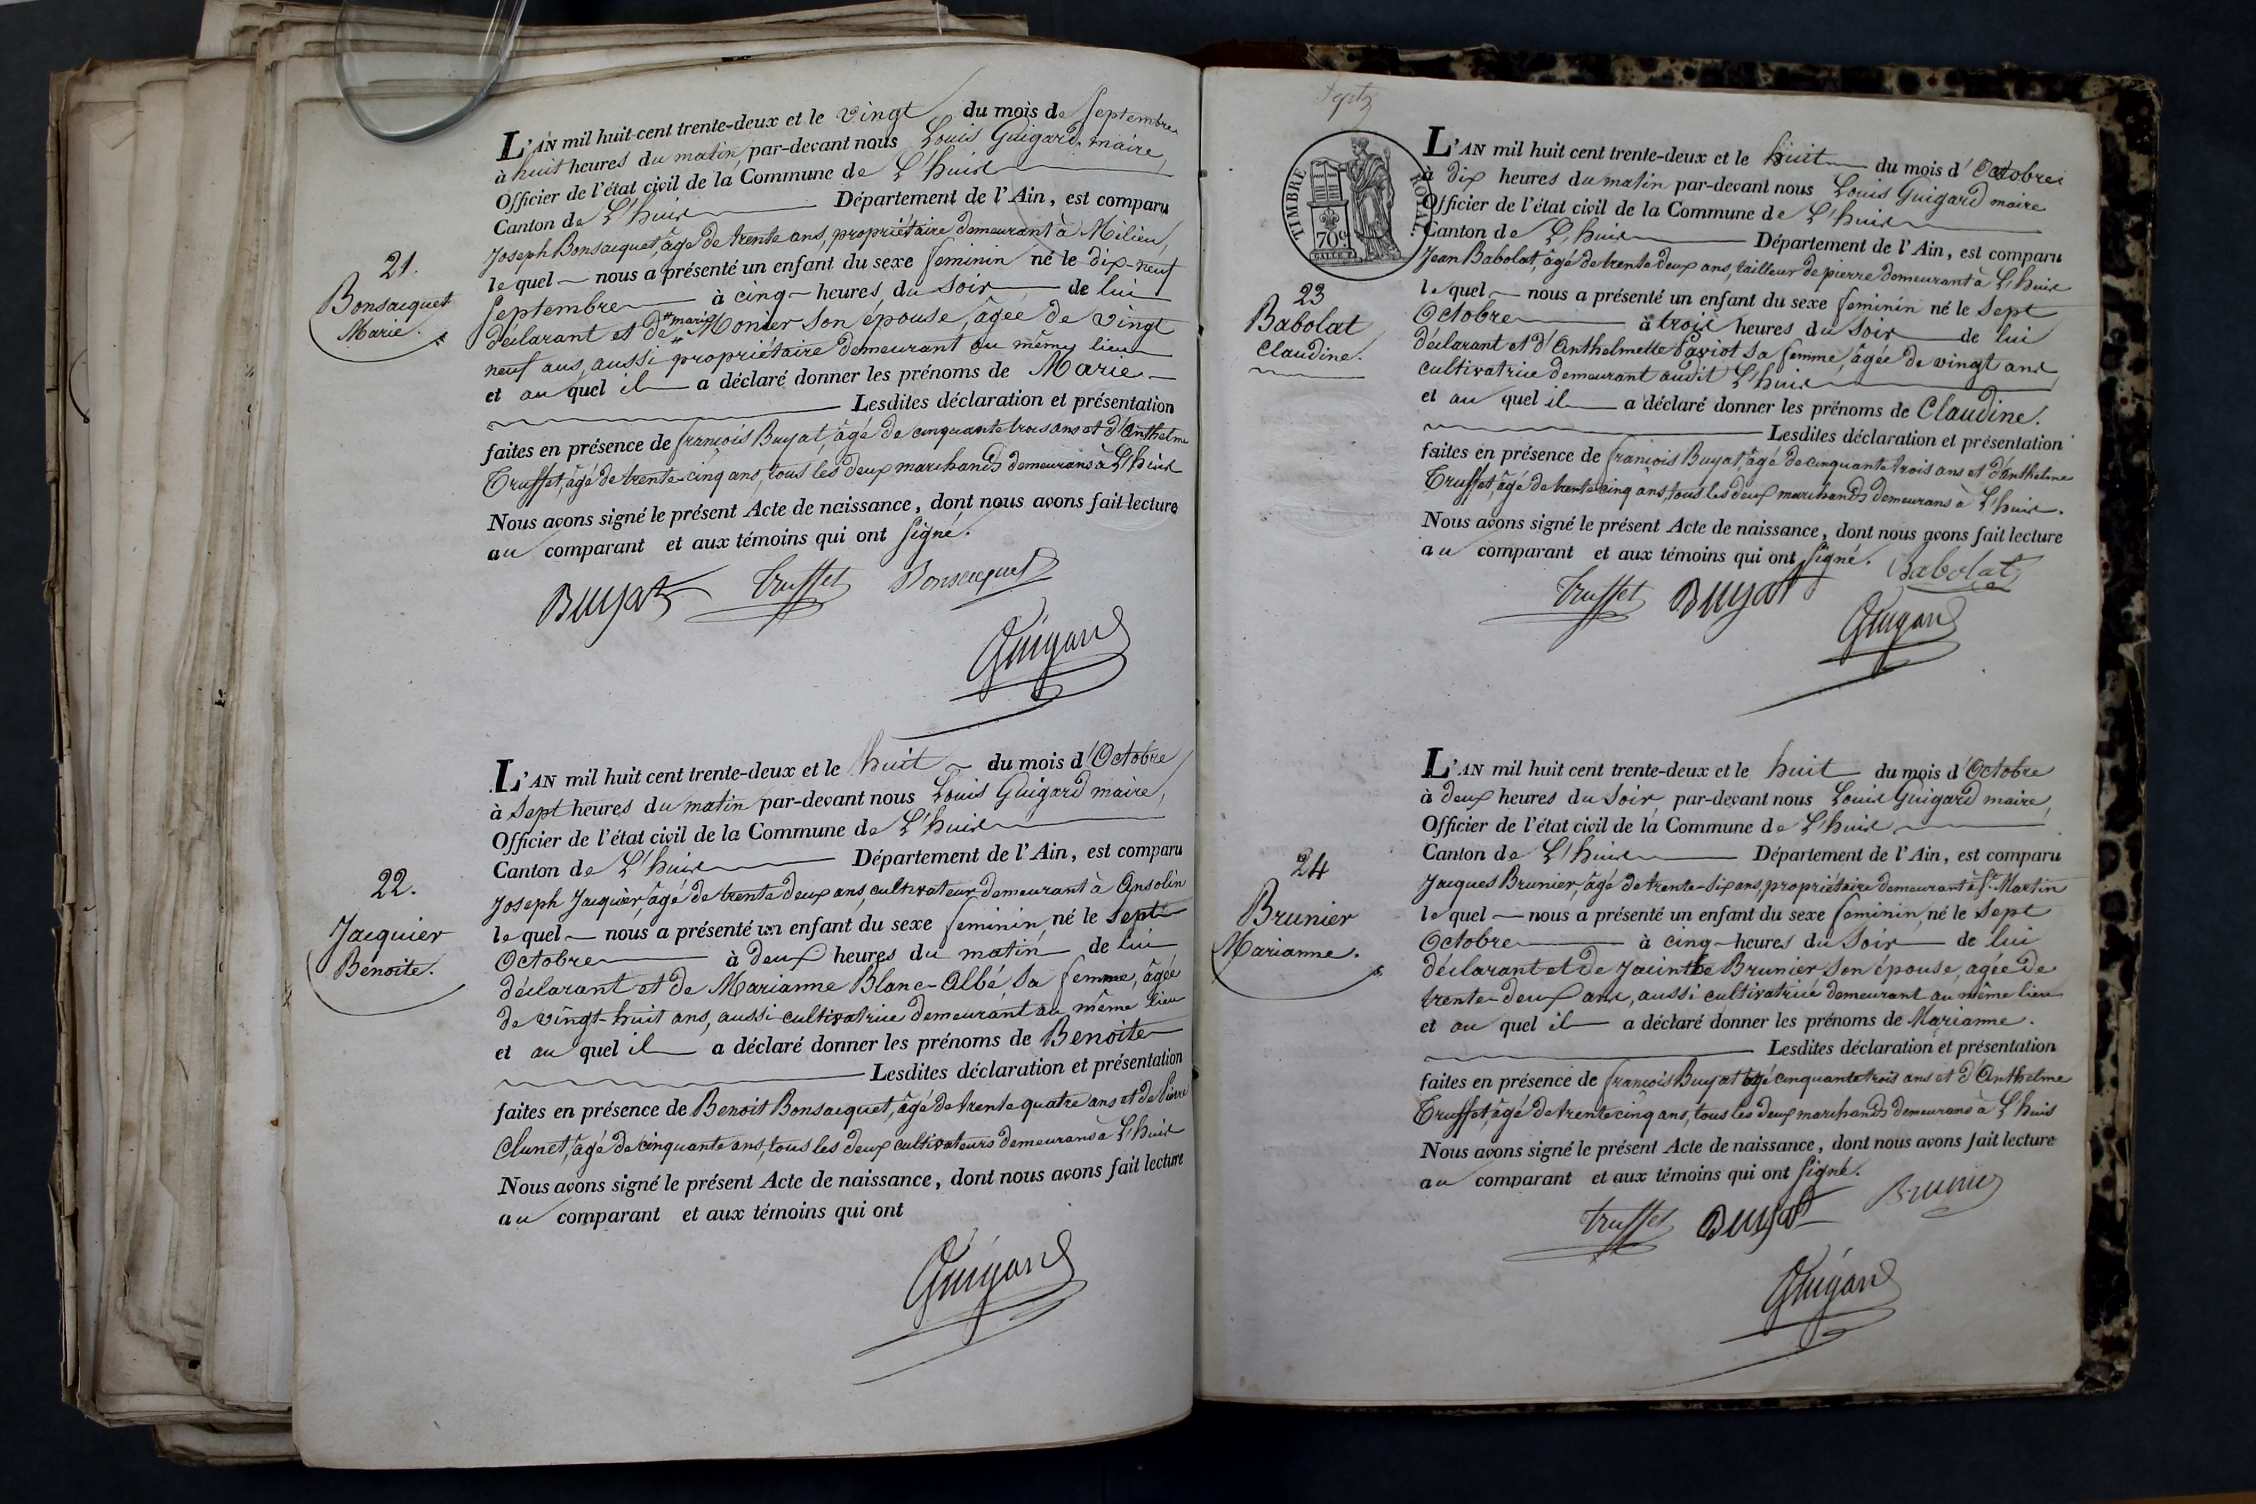 L'AN mil huit cent trente-deux et le vingt du mois de Septembre
à huit heures du matin, par-devant nous Louis Guigard, maire,
Officier de l'état civil de la Commune de L'huis
Canton de L'huis Département de l'Ain, est comparu
Joseph Bonsacquet, âgé de trente ans, propriétaire demeurant à Milieu,
le quel nous a présenté un enfant du sexe feminin né le dix-neuf
Septembre à cinq heures du Soir de lui
déclarant et de marie Monier Son épouse, âgée de vingt
neuf ans, aussi propriétaire demeurant au même lieu
et au quel il a déclaré donner les prénoms de Marie
Lesdites déclaration et présentation
faites en présence de françois Buyat, âgé de cinquante trois ans et d'Anthelme
Truffet, âgé de trente-cinq ans, tous les deux marchands demeurans à L'huis
Nous avons signé le présent Acte de naissance, dont nous avons fait lecture
au comparant et aux témoins qui ont signé.
Buyat Truffet Bonsacquet
Guigard
21.
Bonsacquet
Marie.
L'AN mil huit cent trente-deux et le huit du mois d'Octobre
à Sept heures du matin par-devant nous Louis Guigard maire,
Officier de l'état civil de la Commune de L'huis
Canton de L'huis Département de l'Ain, est comparu
Joseph Jacquier, âgé de trente deux ans, cultivateur demeurant à Ansolin
le quel nous a présenté un enfant du sexe feminin, né le sept
Octobre à deux heures du matin de lui
déclarant et de Marianne Blanc-Albé Sa femme, âgée
de vingt-huit ans, aussi cultivatrice demeurant au même lieu
et au quel il a déclaré donner les prénoms de Benoite
Lesdites déclaration et présentation
faites en présence de Benoit Bonsacquet, âgé de trente quatre ans et de Pierre
Clunet, âgé de cinquante ans, tous les deux cultivateurs demeurans à L'huis
Nous avons signé le présent Acte de naissance, dont nous avons fait lecture
au comparant et aux témoins qui ont
Guigard
22.
Jacquier
Benoite.
Septz
TIMBRE ROYAL
70c
L'AN mil huit cent trente-deux et le huit du mois d'Octobre
à dix heures du matin par-devant nous Louis Guigard maire
Officier de l'état civil de la Commune de L'huis
Canton de L'huis Département de l'Ain, est comparu
Jean Babolat, âgé de trente deux ans, tailleur de pierre demeurant à L'huis
le quel nous a présenté un enfant du sexe feminin né le Sept
Octobre à trois heures du Soir de lui
déclarant et d'Anthelmette Sa femme, âgée de vingt ans
cultivatrice demeurant audit L'huis
et au quel il a déclaré donner les prénoms de Claudine.
Lesdites déclaration et présentation
faites en présence de françois Buyat, âgé de cinquante trois ans et d'Anthelme
Truffet, âgé de trente cinq ans, tous les deux marchands demeurans à L'huis.
Nous avons signé le présent Acte de naissance, dont nous avons fait lecture
au comparant et aux témoins qui ont signé. Babolat
Truffet Buyat
Guigard
23
Babolat
Claudine.
L'AN mil huit cent trente-deux et le huit du mois d'Octobre
à deux heures du Soir, par-devant nous Louis Guigard maire,
Officier de l'état civil de la Commune de L'huis
Canton de L'huis Département de l'Ain, est comparu
Jacques Brunier, âgé de trente-six ans, propriétaire demeurant à St. Martin
le quel nous a présenté un enfant du sexe feminin, né le Sept
Octobre à cinq heures du Soir de lui
déclarant et de Jacinthe Brunier Son épouse, agée de
trente-deux ans, aussi cultivatrice demeurant au même lieu
et au quel il a déclaré donner les prénoms de Marianne.
Lesdites déclaration et présentation
faites en présence de françois Buyat âgé cinquante trois ans et d'Anthelme
Truffet, âgé de trente cinq ans, tous les deux marchands demeurans à L'huis
Nous avons signé le présent Acte de naissance, dont nous avons fait lecture
au comparant et aux témoins qui ont signé.
Truffet Buyat Brunier
Guigard
24
Brunier
Marianne.